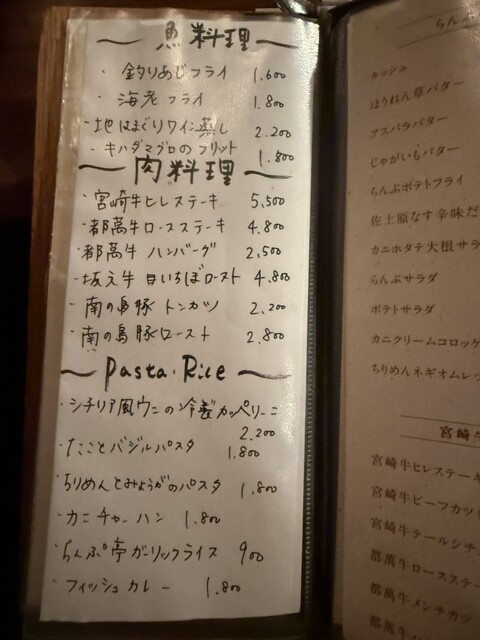 魚料理
・釣りあじフライ 1.600
・海老フライ 1.800
・地はまぐりワイン蒸し 2.200
・キハダマグロのフリット 1.800
肉料理
・宮崎牛ヒレステーキ 5,500
・都萬牛ロースステーキ 4.800
・都萬牛 ハンバーグ 2,500
・坂元牛 ロースト 4.800
・南の島豚 トンカツ 2,200
・南の島豚ロースト 2.800
Pasta・Rice
・シチリア風ウニの冷製カッペリーニ
2.200
・たことバジルパスタ 1.800
・ちりめんとみょうがのパスタ 1,800
・カニチャーハン 1.800
・らんぷ亭ガーリックライス 900
・フィッシュカレー 1.800
らんぷ
キッシュ
ほうれん草バター
アスパラバター
じゃがいもバター
らんぷポテトフライ
佐土原なす辛味だ
カニホタテ大根サラ
らんぷサラダ
ポテトサラダ
カニクリームコロッケ
ちりめんネギオムレツ
宮崎牛
宮崎牛ヒレステーキ
宮崎牛ビーフカツ
宮崎牛テールシチ
都萬牛ロースステー
都萬牛メンチカツ
都萬牛